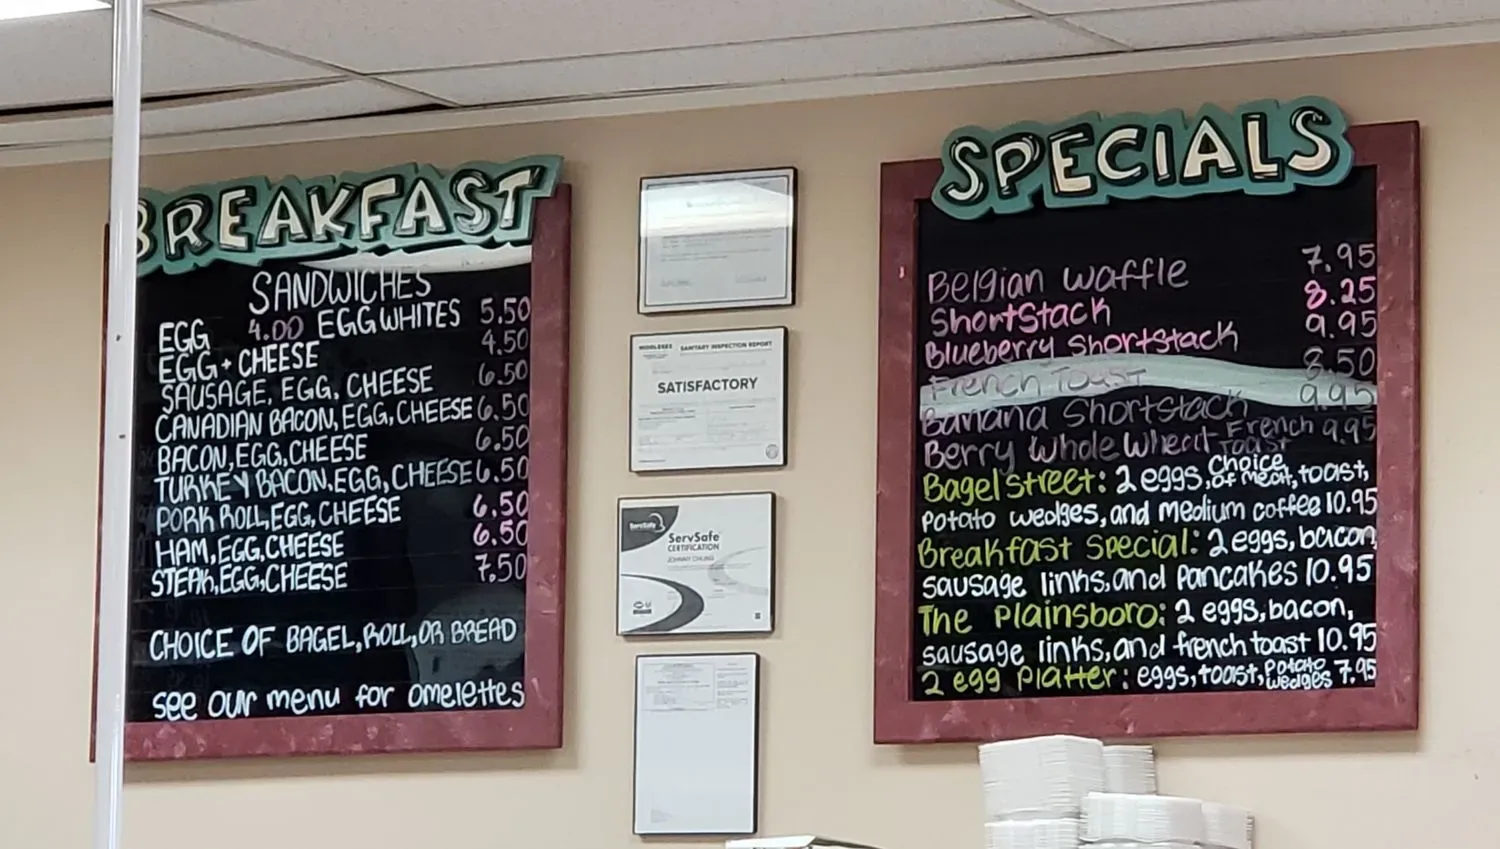 BREAKFAST
SANDWICHES
EGG 4.00 EGG WHITES 5.50
EGG + CHEESE 4.50
SAUSAGE, EGG, CHEESE 6.50
CANADIAN BACON, EGG, CHEESE 6.50
BACON, EGG, CHEESE 6.50
TURKEY BACON, EGG, CHEESE 6.50
PORK ROLL, EGG, CHEESE 6.50
HAM, EGG, CHEESE 6.50
STEAK, EGG, CHEESE 7.50
CHOICE OF BAGEL, ROLL, OR BREAD
see our menu for omelettes
MIDDLESEX SANITARY INSPECTION REPORT
SATISFACTORY
ServSafe
ServSafe
CERTIFICATION
JOHNNY CHUNG
SPECIALS
Belgian Waffle 7.95
Shortstack 8.25
Blueberry Shortstack 9.95
French Toast 8.50
Banana Shortstack 9.95
Berry Whole Wheat French Toast 9.95
Bagel Street: 2 eggs, choice of meat, toast,
potato wedges, and medium coffee 10.95
Breakfast Special: 2 eggs, bacon,
sausage links, and pancakes 10.95
The Plainsboro: 2 eggs, bacon,
sausage links, and french toast 10.95
2 egg Platter: eggs, toast, potato wedges 7.95